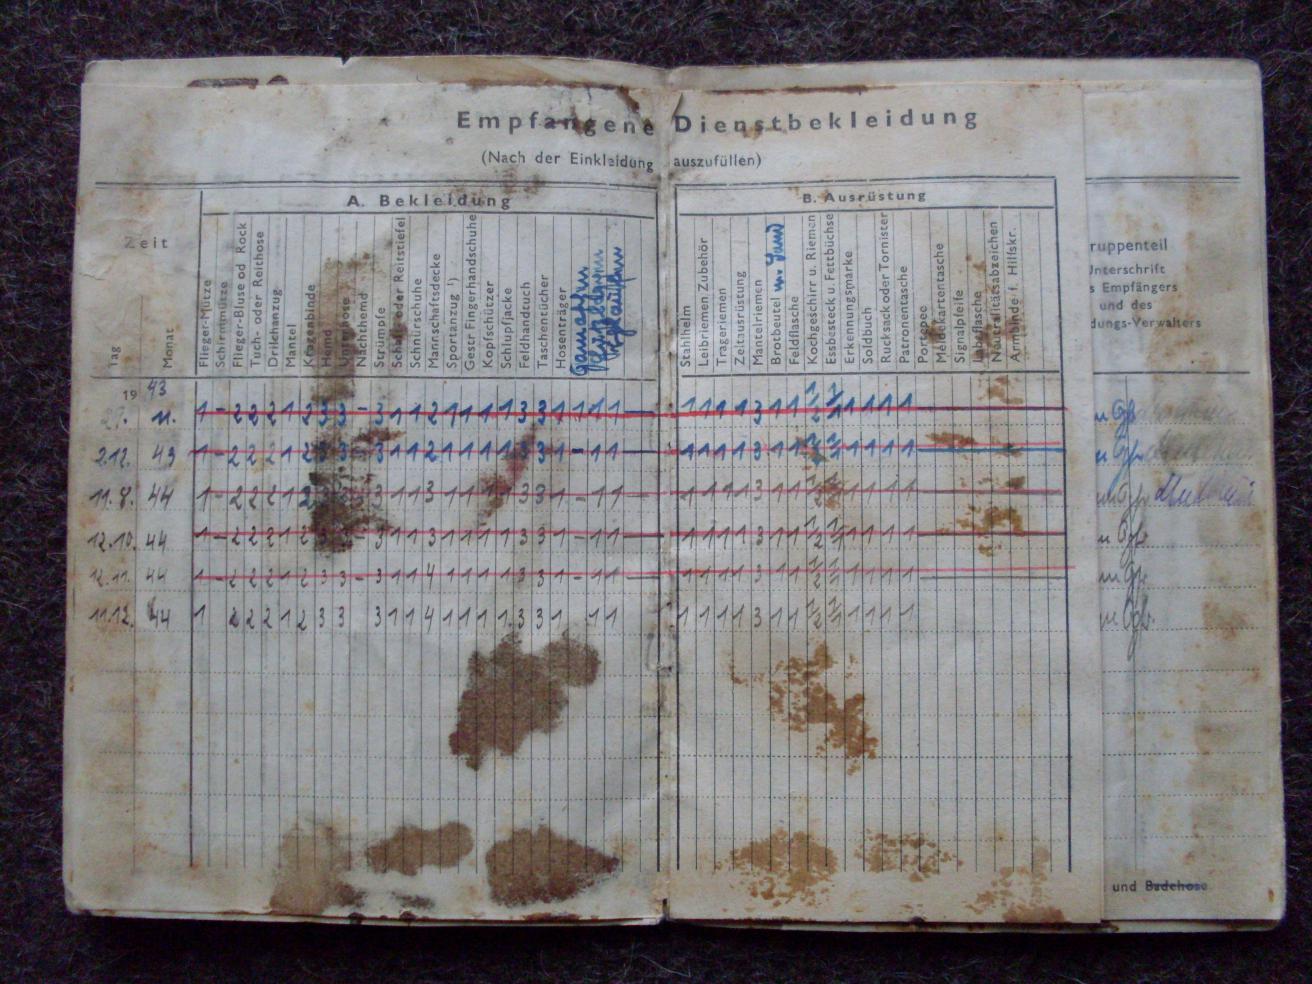 Empfangene Dienstbekleidung
(Nach der Einkleidung auszufüllen)
A. Bekleidung
B. Ausrüstung
Zeit
Tag
Monat
Flieger-Mütze
Schirmmütze
Flieger-Bluse od Rock
Tuch- oder Reithose
Drillichanzug
Mantel
Kragenbinde
Hemd
Unterhose
Nachthemd
Strümpfe
Schaft- oder Reitstiefel
Schnürschuhe
Mannschaftsdecke
Sportanzug ¹)
Gestr Fingerhandschuhe
Kopfschützer
Schlupfjacke
Feldhandtuch
Taschentücher
Hosenträger
Stahlhelm
Leibriemen Zubehör
Trageriemen
Zeltausrüstung
Mantelriemen
Brotbeutel m. Band
Feldflasche
Kochgeschirr u. Riemen
Essbesteck u. Fettbüchse
Erkennungsmarke
Soldbuch
Rucksack oder Tornister
Patronentasche
Portepee
Meldekartentasche
Signalpfeife
Labeflasche
Neutralitätsabzeichen
Armbinde f. Hilfskr.
ruppenteil
Unterschrift
s Empfängers
und des
dungs-Verwalters
1943
27. 11. 1 - 2 2 2 1 2 3 3 - 3 1 1 2 1 1 1 1 3 3 1 1 1 1 1 1 1 1 3 1 1 1/2 1/1 1 1 1 1
2.12. 43 1 - 2 2 2 1 2 3 3 - 3 1 1 2 1 1 1 1 3 3 1 - 1 1 1 1 1 1 3 1 1 1/2 1/1 1 1 1 1
11.8. 44 1 - 2 2 2 1 2 3 3 - 3 1 1 3 1 1 1 1 3 3 1 - 1 1 1 1 1 1 3 1 1 1/2 1/1 1 1 1 1
12.10. 44 1 - 2 2 2 1 2 3 3 - 3 1 1 3 1 1 1 1 3 3 1 - 1 1 1 1 1 1 3 1 1 1/2 1/1 1 1 1 1
12.11. 44 1 - 2 2 2 1 2 3 3 - 3 1 1 4 1 1 1 1 3 3 1 - 1 1 1 1 1 1 3 1 1 1/2 1/1 1 1 1 1
11.12. 44 1 2 2 2 1 2 3 3 3 1 1 4 1 1 1 1 3 3 1 1 1 1 1 1 1 3 1 1 1/2 1/1 1 1 1 1
und Badehose